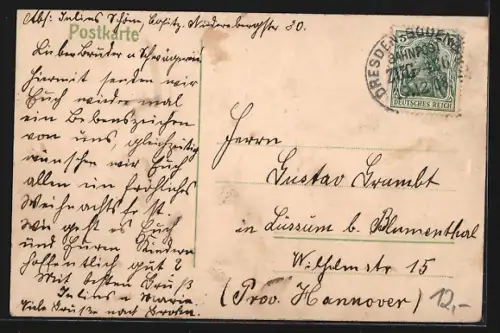 Abs: Julius Schöne, Cossitz. Niederbergstr 30.
Postkarte
Lieber Bruder u Schwägerin
Hiermit senden wir
Euch wieder mal
ein Lebenszeichen
von uns, gleichzeitig
wünschen wir Euch
allen ein fröhliches
Weihnachtsfest.
Wie geht es Euch
und Euren Kindern
hoffentlich gut?
Mit besten Gruß
Julius u Marie
Viele Grüße nach
DRESDEN-BODENB
BAHNPOST
ZUG
DEUTSCHES REICH
Herrn
Gustav Grambt
in Lüssum b. Blumenthal
Wilhelmstr 15
(Prov. Hannover)
12,-